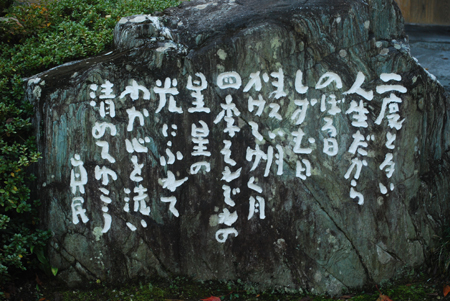 二度とない
人生だから
のぼる日
しずむ日
まるい月
かけてゆく月
四季それぞれの
星星の
光にふれて
わが心を洗い
清めてゆこう
真民